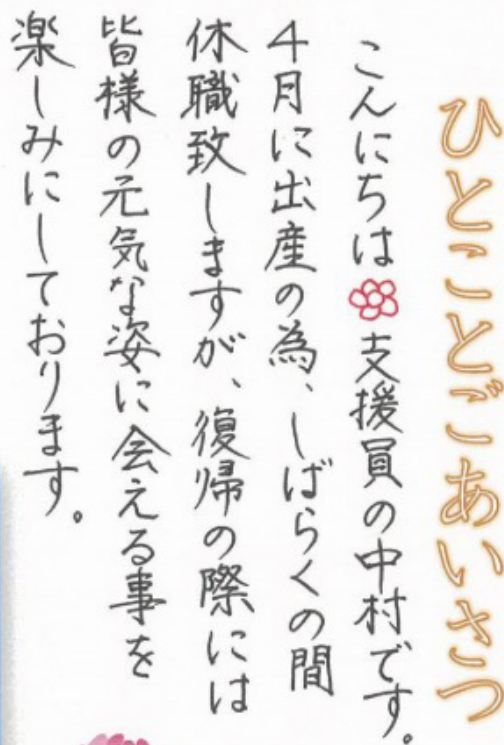 ひとことごあいさつ
こんにちは 支援員の中村です。
4月に出産の為、しばらくの間
休職致しますが、復帰の際には
皆様の元気な姿に会える事を
楽しみにしております。